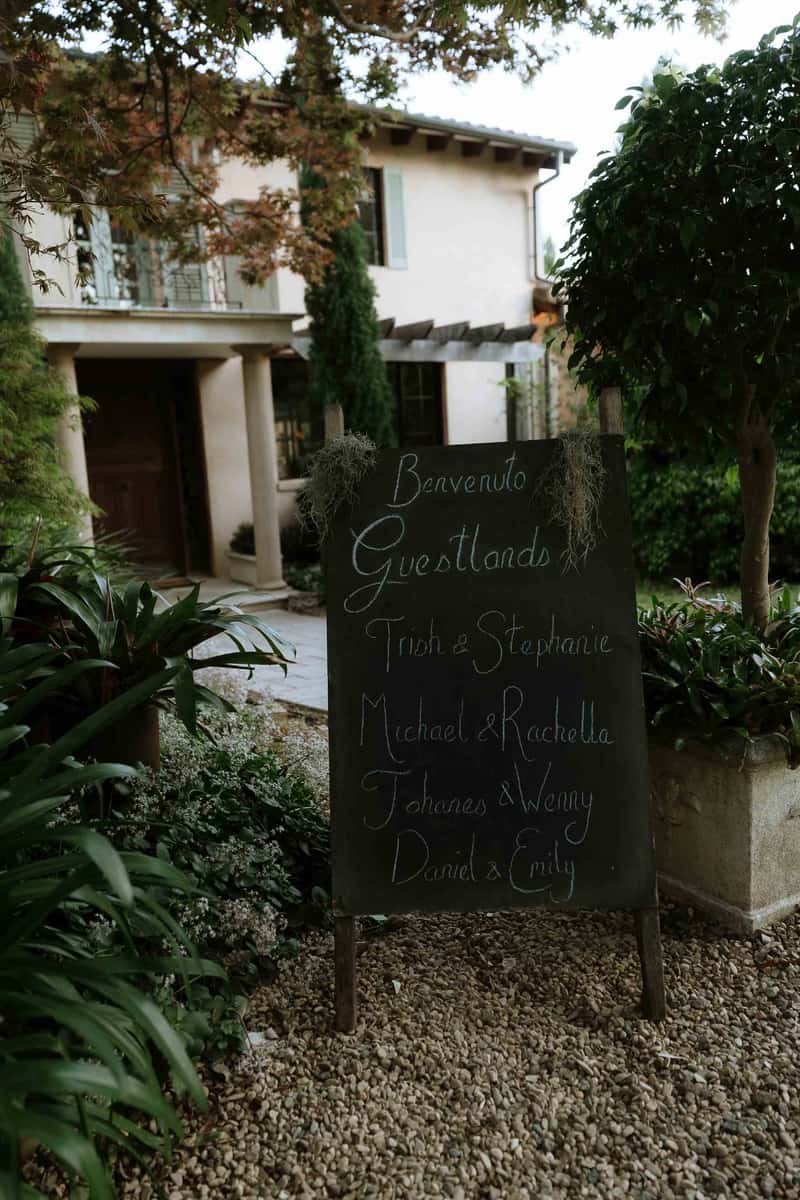 Benvenuto
Guestlands
Trish & Stephanie
Michael & Rachella
Johanes & Wenny
Daniel & Emily